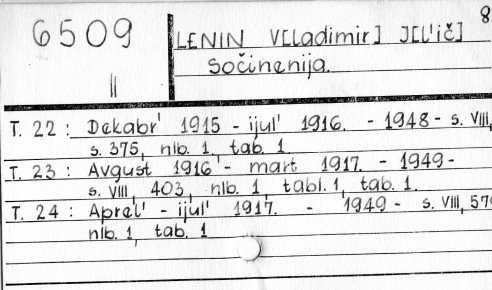 8
6509
LENIN V[ladimir] I[l'ič]
Sočinenija.
II
T. 22 : Dekabr' 1915 - ijul' 1916. - 1948 - s. VIII,
s. 375, nlb. 1, tab. 1
T. 23 : Avgust 1916 - mart 1917. - 1949 -
s. VIII, 403, nlb. 1, tabl. 1, tab. 1.
T. 24 : Aprel' - ijul' 1917. - 1949 - s. VIII,
nlb. 1, tab. 1